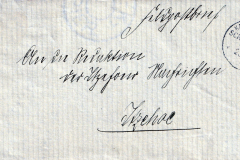 Feldpostbrief
An die Redaktion
der Itzehoer Nachrichten
Itzehoe